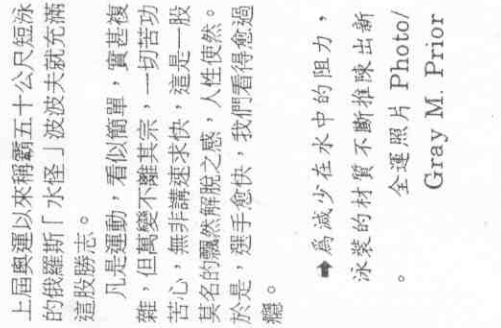 上屆奧運以來稱霸五十公尺短泳
的俄羅斯「水怪」波波夫就充滿
這股勝志。
凡是運動，看似簡單，實甚複
雜，但萬變不離其宗，一切苦功
苦心，無非講速求快，這是一股
莫名的飄然解脫之感，人性使然。
於是，選手愈快，我們看得愈過
癮。
➡為減少在水中的阻力，
泳裝的材質不斷推陳出新
。 全運照片 Photo/
Gray M. Prior